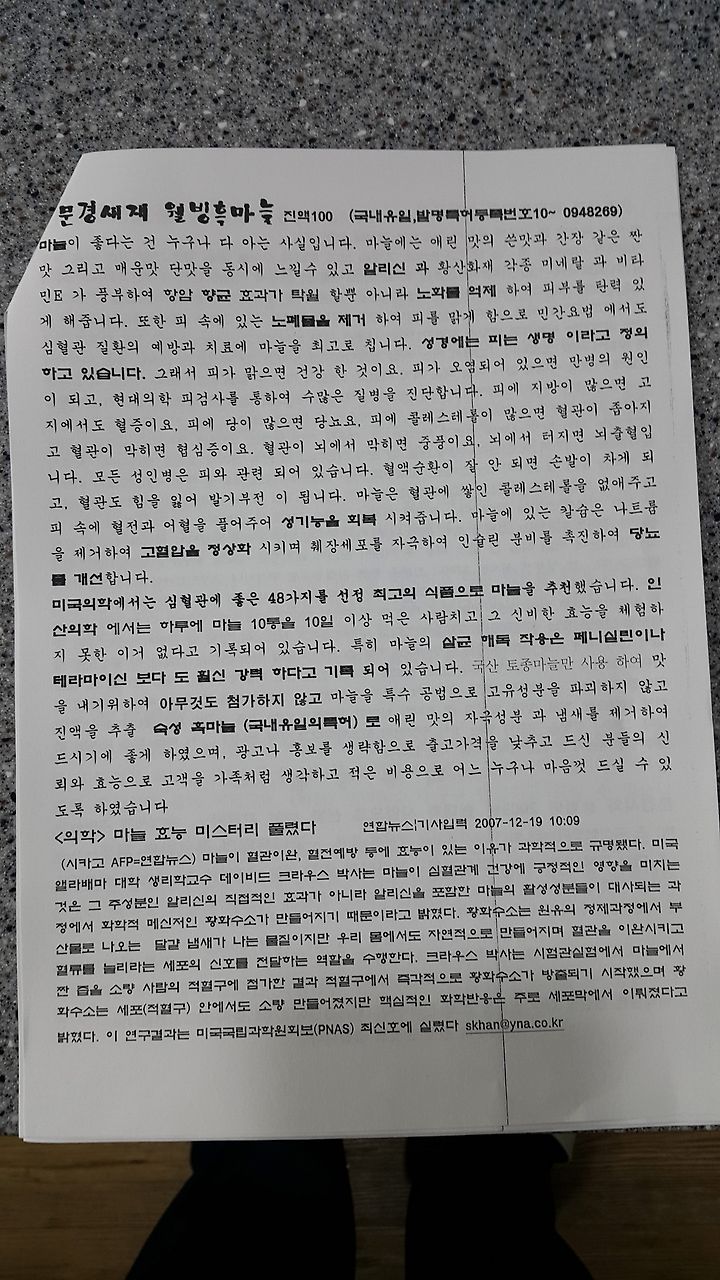 문경새재 웰빙흑마늘 진액100 (국내유일,발명특허등록번호10~ 0948269)
마늘이 좋다는 건 누구나 다 아는 사실입니다. 마늘에는 애린 맛의 쓴맛과 간장 같은 짠
맛 그리고 매운맛 단맛을 동시에 느낄수 있고 알리신 과 황산화재 각종 미네랄 과 비타
민E 가 풍부하여 항암 향균 효과가 탁월 할뿐 아니라 노화를 억제 하여 피부를 탄력 있
게 해줍니다. 또한 피 속에 있는 노폐물을 제거 하여 피를 맑게 함으로 민간요법 에서도
심혈관 질환의 예방과 치료에 마늘을 최고로 칩니다. 성경에는 피는 생명 이라고 정의
하고 있습니다. 그래서 피가 맑으면 건강 한 것이요. 피가 오염되어 있으면 만병의 원인
이 되고, 현대의학 피검사를 통하여 수많은 질병을 진단합니다. 피에 지방이 많으면 고
지에서도 혈증이요, 피에 당이 많으면 당뇨요, 피에 콜레스테롤이 많으면 혈관이 좁아지
고 혈관이 막히면 협심증이요. 혈관이 뇌에서 막히면 중풍이요, 뇌에서 터지면 뇌출혈입
니다. 모든 성인병은 피와 관련 되어 있습니다. 혈액순환이 잘 안 되면 손발이 차게 되
고, 혈관도 힘을 잃어 발기부전 이 됩니다. 마늘은 혈관에 쌓인 콜레스테롤을 없애주고
피 속에 혈전과 어혈을 풀어주어 성기능을 회복 시켜줍니다. 마늘에 있는 칼슘은 나트륨
을 제거하여 고혈압을 정상화 시키며 췌장세포를 자극하여 인슐린 분비를 촉진하여 당뇨
를 개선합니다.
미국의학에서는 심혈관에 좋은 48가지를 선정 최고의 식품으로 마늘을 추천했습니다. 인
산의학 에서는 하루에 마늘 10통을 10일 이상 먹은 사람치고 그 신비한 효능을 체험하
지 못한 이거 없다고 기록되어 있습니다. 특히 마늘의 살균 해독 작용은 페니실린이나
테라마이신 보다 도 훨신 강력 하다고 기록 되어 있습니다. 국산 토종마늘만 사용 하여 맛
을 내기위하여 아무것도 첨가하지 않고 마늘을 특수 공법으로 고유성분을 파괴하지 않고
진액을 추출 숙성 흑마늘 (국내유일의특허) 로 애린 맛의 자극성분 과 냄새를 제거하여
드시기에 좋게 하였으며, 광고나 홍보를 생략함으로 출고가격을 낮추고 드신 분들의 신
뢰와 효능으로 고객을 가족처럼 생각하고 적은 비용으로 어느 누구나 마음껏 드실 수 있
도록 하였습니다
<의학> 마늘 효능 미스터리 풀렸다 연합뉴스|기사입력 2007-12-19 10:09
(시카고 AFP=연합뉴스) 마늘이 혈관이완, 혈전예방 등에 효능이 있는 이유가 과학적으로 규명됐다. 미국
앨라배마 대학 생리학교수 데이비드 크라우스 박사는 마늘이 심혈관계 건강에 긍정적인 영향을 미치는
것은 그 주성분인 알리신의 직접적인 효과가 아니라 알리신을 포함한 마늘의 활성성분들이 대사되는 과
정에서 화학적 메신저인 황화수소가 만들어지기 때문이라고 밝혔다. 황화수소는 원유의 정제과정에서 부
산물로 나오는 달걀 냄새가 나는 물질이지만 우리 몸에서도 자연적으로 만들어지며 혈관을 이완시키고
혈류를 늘리라는 세포의 신호를 전달하는 역할을 수행한다. 크라우스 박사는 시험관실험에서 마늘에서
짠 즙을 소량 사람의 적혈구에 첨가한 결과 적혈구에서 즉각적으로 황화수소가 방출되기 시작했으며 황
화수소는 세포(적혈구) 안에서도 소량 만들어졌지만 핵심적인 화학반응은 주로 세포막에서 이뤄졌다고
밝혔다. 이 연구결과는 미국국립과학원회보(PNAS) 최신호에 실렸다 skhan@yna.co.kr